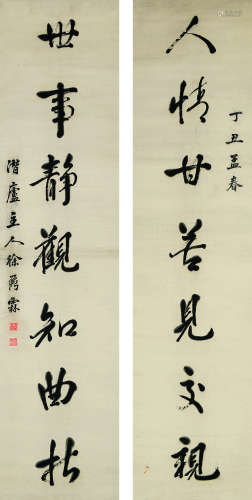 丁丑孟春
人情甘苦見交親
世事靜觀知曲折
潛廬主人徐霖